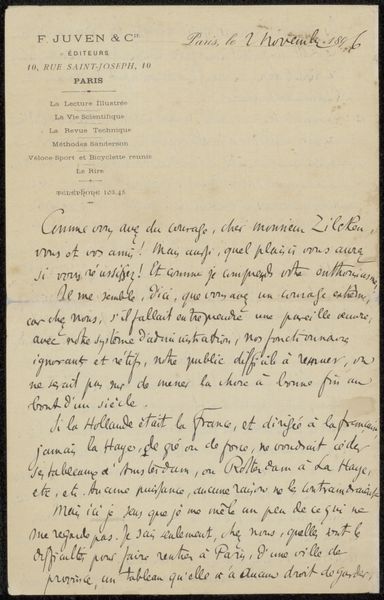 F. JUVEN & Cie
ÉDITEURS
10, RUE SAINT-JOSEPH, 10
PARIS
La Lecture Illustrée
La Vie Scientifique
La Revue Technique
Méthodes Sanderson
Véloce-Sport et Bicyclette réunis
Le Rire
TÉLÉPHONE 103.45
Paris, le 2 Novembre 1896
Comme vous avez du courage, cher monsieur Zilcken,
vous et vos amis! Mais aussi, quel plaisir vous aurez
si vous réussissez! Et comme je comprends votre enthousiasme
Il me semble, d'ici, que vous avez un courage extrême,
car chez nous, s'il fallait entreprendre une pareille œuvre,
avec notre système d'administration, nos fonctionnaires
ignorants et rétifs, notre public difficile à remuer, on
ne serait pas sûr de mener la chose à bonne fin au
bout d'un siècle.
Si la Hollande était la France, et dirigée à la française
jamais la Haye, de gré ou de force, ne voudrait céder
ses tableaux à Amsterdam, ou Rotterdam à La Haye,
etc, etc. Aucune puissance, aucune raison ne les contraindrait
Mais ici je sens que je me mêle un peu de ce qui ne
me regarde pas. Je sais seulement, chez nous, quelles sont les
difficultés pour faire rentrer à Paris, d'une ville de
province, un tableau qu'elle n'a aucun droit de garder,